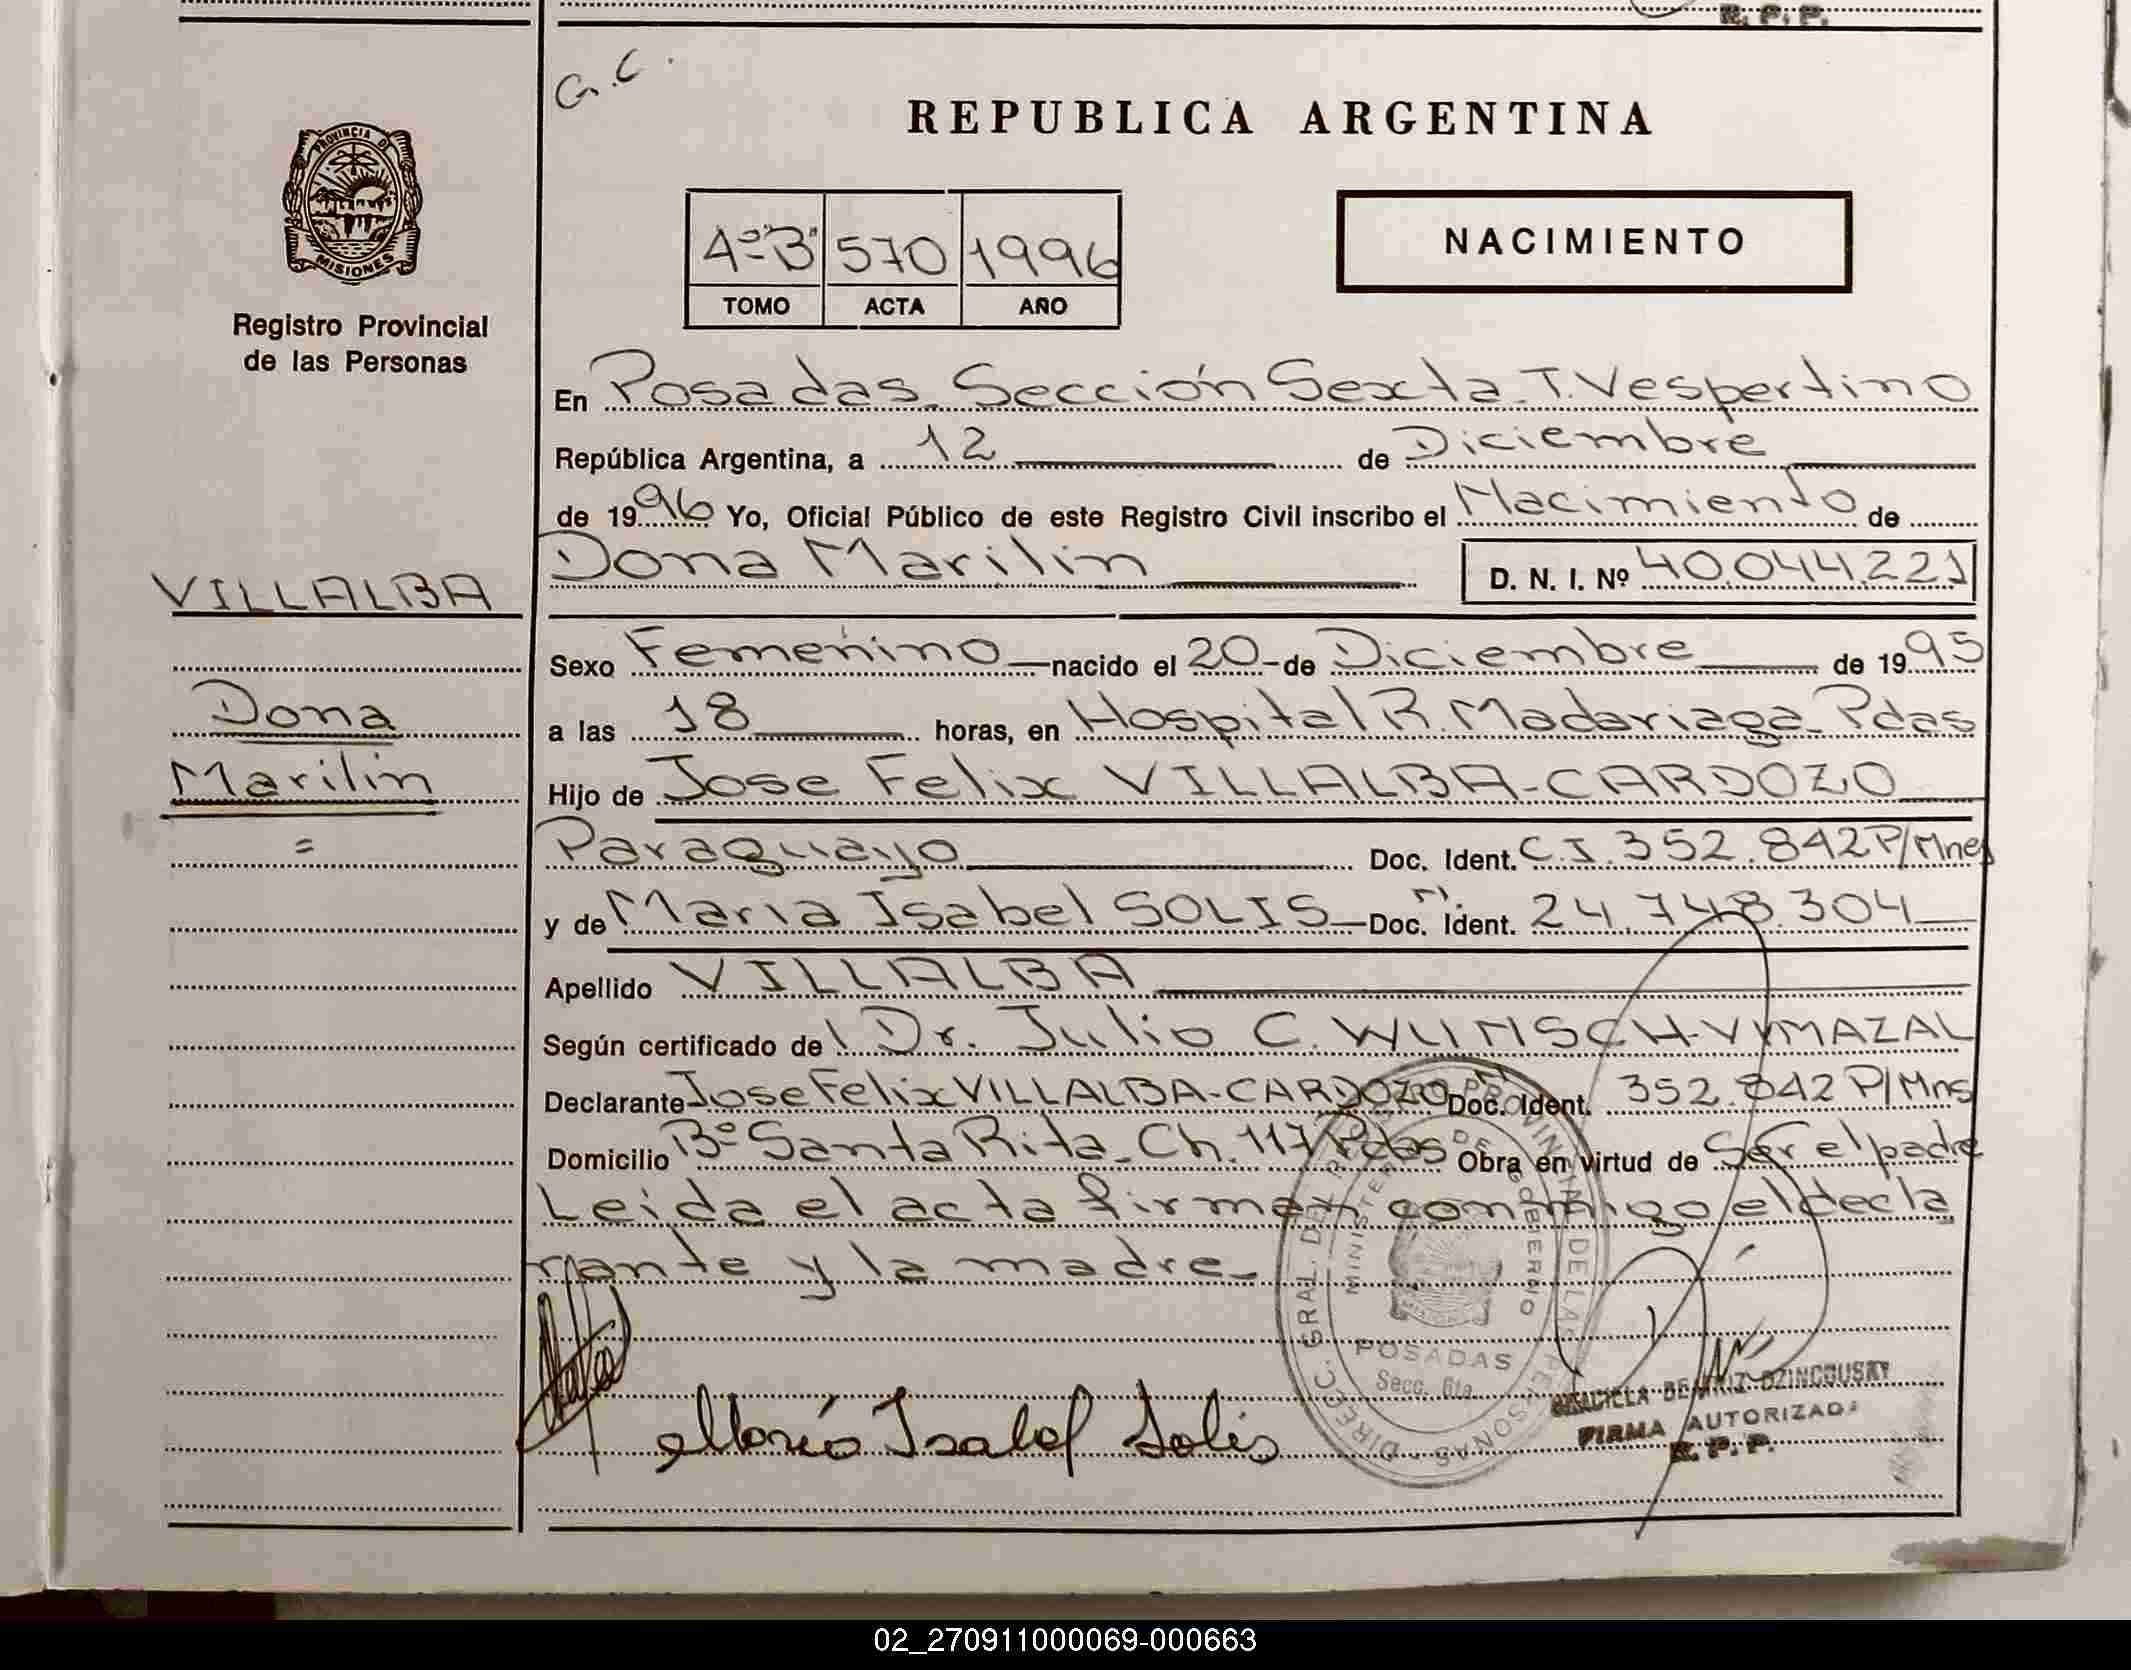 R. P. P.
G. C.
PROVINCIA DE
MISIONES
Registro Provincial
de las Personas
REPUBLICA ARGENTINA
NACIMIENTO
4º"B" 570 1996
TOMO ACTA AÑO
En Posadas. Sección Sexta. T. Vespertino
República Argentina, a 12 de Diciembre
de 1996 Yo, Oficial Público de este Registro Civil inscribo el Nacimiento de
VILLALBA
Dona Marilin D. N. I. Nº 40.044.221
Sexo Femenino nacido el 20 de Diciembre de 1995
Dona
a las 18 horas, en Hospital R. Madariaga. Pdas
Marilin
Hijo de Jose Felix VILLALBA-CARDOZO
=
Paraguayo Doc. Ident. C.I. 352.842 P/Mnes
y de Maria Isabel SOLIS Doc. Ident. 24.748.304
Apellido VILLALBA
Según certificado de l Dr. Julio C. WUNSCH-VYMAZAL
Declarante Jose Felix VILLALBA-CARDOZO Doc. Ident. 352.842 P/Mns
Domicilio Bº Santa Rita. Ch. 117 Pdas Obra en virtud de Ser el padre
Leida el acta firman conmigo el decla
rante y la madre.
DIRECC. GRAL. DEL PROVIN. DE LAS PERSONAS
MINISTERIO DE GOBIERNO
POSADAS
Secc. 6ta.
Maria Isabel Solis
GRACIELA BEATRIZ DZINCOUSKY
FIRMA AUTORIZADA
R. P. P.
02_270911000069-000663